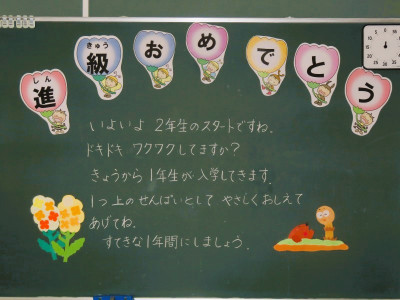 進級おめでとう
しん きゅう
いよいよ 2年生のスタートですね。
ドキドキ ワクワクしてますか?
きょうから 1年生が 入学してきます。
1つ 上の せんぱいとして やさしく おしえて
あげてね。
すてきな 1年間に しましょう。